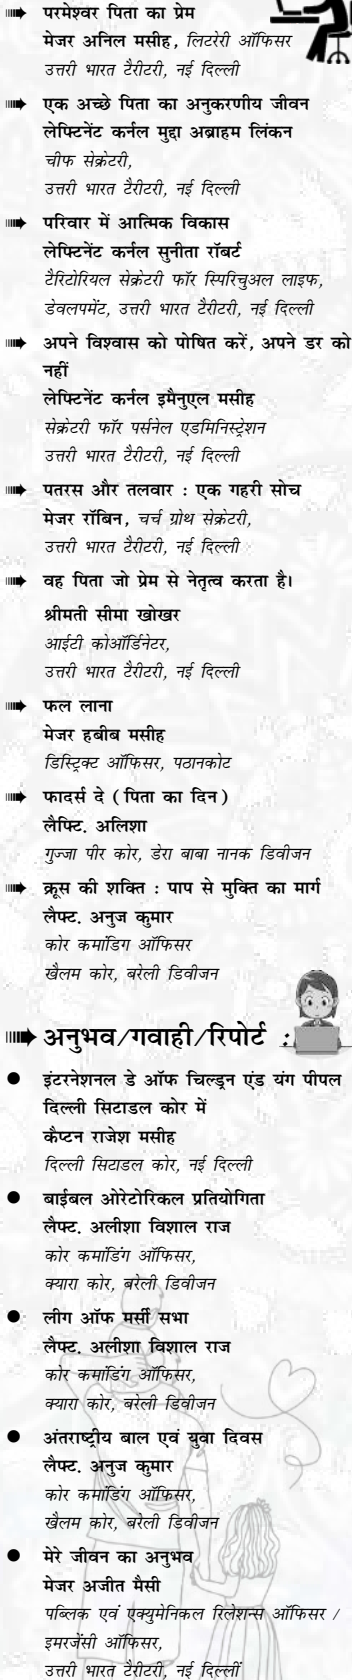 परमेश्वर पिता का प्रेम
मेजर अनिल मसीह, लिटरेरी ऑफिसर
उत्तरी भारत टैरीटरी, नई दिल्ली
एक अच्छे पिता का अनुकरणीय जीवन
लेफ्टिनेंट कर्नल मुद्दा अब्राहम लिंकन
चीफ सेक्रेटरी,
उत्तरी भारत टैरीटरी, नई दिल्ली
परिवार में आत्मिक विकास
लेफ्टिनेंट कर्नल सुनीता रॉबर्ट
टैरिटोरियल सेक्रेटरी फॉर स्पिरिचुअल लाइफ,
डेवलपमेंट, उत्तरी भारत टैरीटरी, नई दिल्ली
अपने विश्वास को पोषित करें, अपने डर को
नहीं
लेफ्टिनेंट कर्नल इमैनुएल मसीह
सेक्रेटरी फॉर पर्सनेल एडमिनिस्ट्रेशन
उत्तरी भारत टैरीटरी, नई दिल्ली
पतरस और तलवार : एक गहरी सोच
मेजर रॉबिन, चर्च ग्रोथ सेक्रेटरी,
उत्तरी भारत टैरीटरी, नई दिल्ली
वह पिता जो प्रेम से नेतृत्व करता है।
श्रीमती सीमा खोखर
आईटी कोऑर्डिनेटर,
उत्तरी भारत टैरीटरी, नई दिल्ली
फल लाना
मेजर हबीब मसीह
डिस्ट्रिक्ट ऑफिसर, पठानकोट
फादर्स दे ( पिता का दिन )
लैफ्टि. अलिशा
गुज्जा पीर कोर, डेरा बाबा नानक डिवीजन
क्रूस की शक्ति : पाप से मुक्ति का मार्ग
लैफ्ट. अनुज कुमार
कोर कमांडिग ऑफिसर
खैलम कोर, बरेली डिवीजन
अनुभव/गवाही/रिपोर्ट :
● इंटरनेशनल डे ऑफ चिल्ड्रन एंड यंग पीपल
दिल्ली सिटाडल कोर में
कैप्टन राजेश मसीह
दिल्ली सिटाडल कोर, नई दिल्ली
● बाईबल ओरेटोरिकल प्रतियोगिता
लैफ्ट. अलीशा विशाल राज
कोर कमांडिंग ऑफिसर,
क्यारा कोर, बरेली डिवीजन
● लीग ऑफ मर्सी सभा
लैफ्ट. अलीशा विशाल राज
कोर कमांडिंग ऑफिसर,
क्यारा कोर, बरेली डिवीजन
● अंतराष्ट्रीय बाल एवं युवा दिवस
लैफ्ट. अनुज कुमार
कोर कमांडिंग ऑफिसर,
खैलम कोर, बरेली डिवीजन
● मेरे जीवन का अनुभव
मेजर अजीत मैसी
पब्लिक एवं एक्युमेनिकल रिलेशन्स ऑफिसर /
इमरजेंसी ऑफिसर,
उत्तरी भारत टैरीटरी, नई दिल्लीं